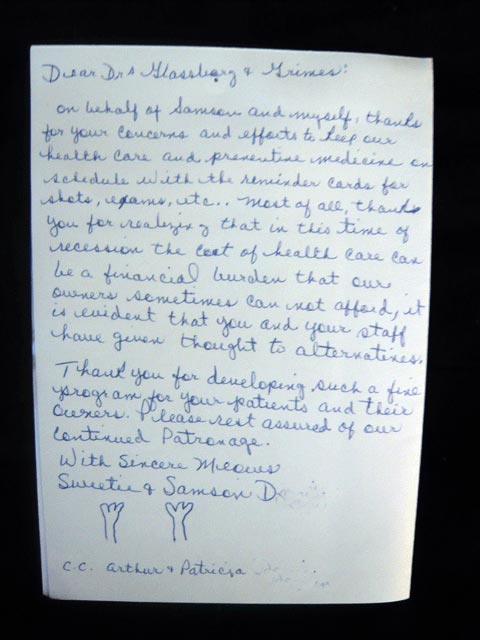 Dear Drs Glassberg & Grimes:
on behalf of Samson and myself, thanks
for your concerns and efforts to keep our
health care and preventive medicine on
schedule with the reminder cards for
shots, exams, etc.. Most of all, thank
you for realizing that in this time of
recession the cost of health care can
be a financial burden that our
owners sometimes can not afford, it
is evident that you and your staff
have given thought to alternatives.
Thank you for developing such a fine
program for your patients and their
Owners. Please rest assured of our
Continued Patronage.
With Sincere Meows
Sweetie & Samson D
C.C. Arthur & Patricia